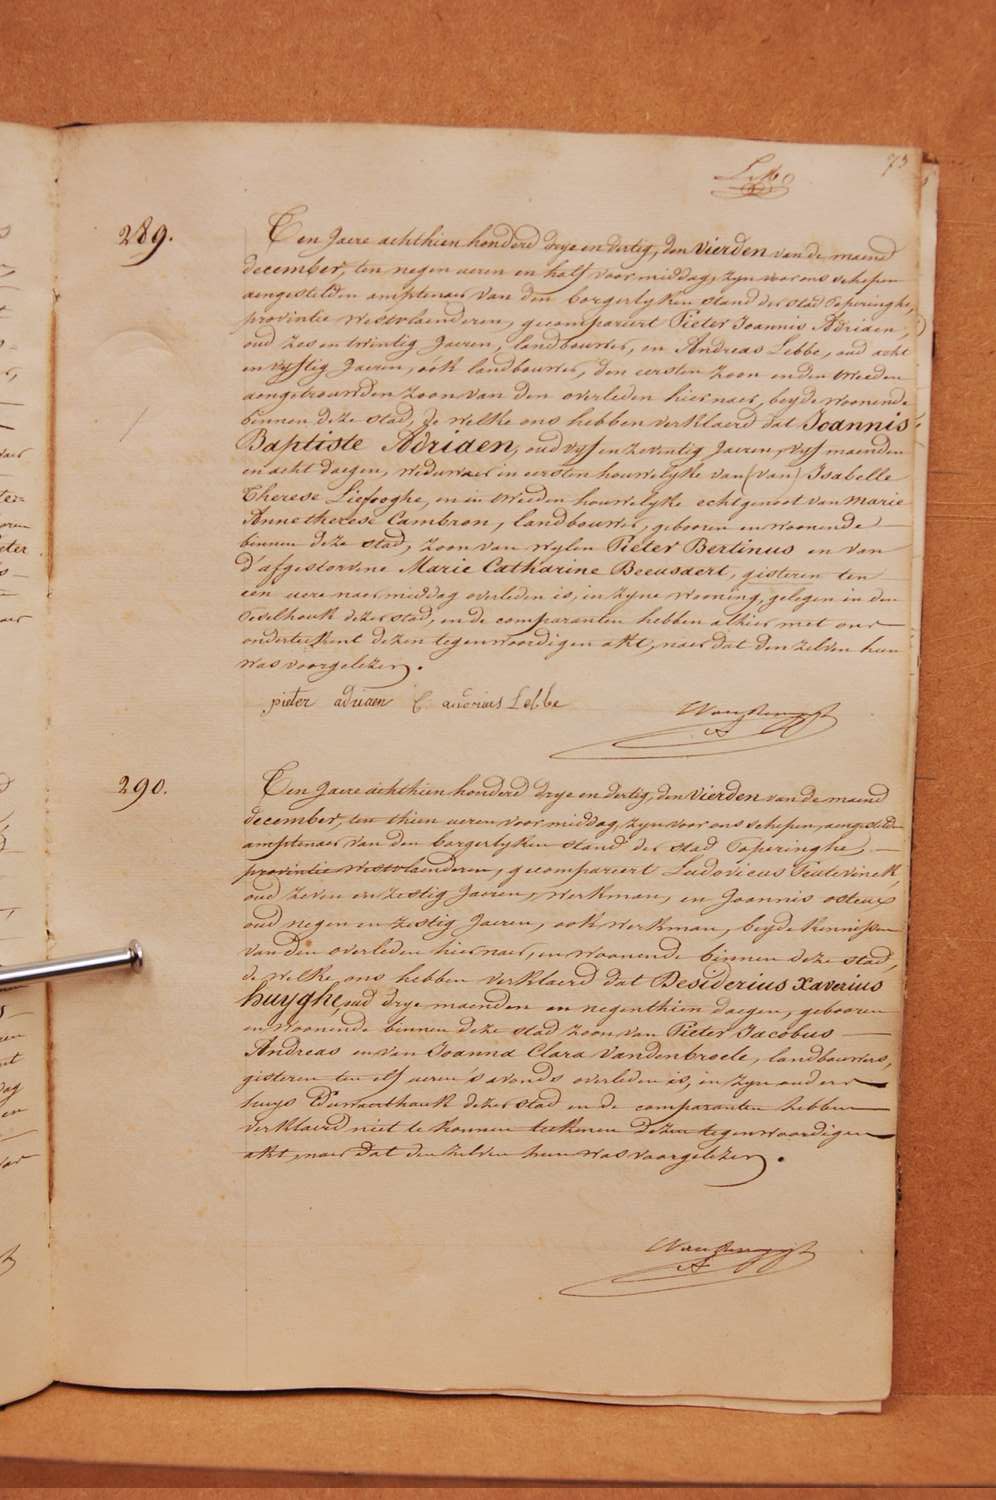 73
289.
Ten Jaere achthien honderd drye en dertig, den vierden van de maend
december, ten negen ueren en half voor middag, zyn voor ons schepen
aengestelden amptenaer van den borgerlyken stand der stad Poperinghe,
provintie westvlaenderen, gecompareert Pieter Joannis Adriaen,
oud zes en twintig Jaeren, landbouwer, en Andreas Lebbe, oud acht
en vyftig Jaeren, ook landbouwer, den eersten zoon en den tweeden
aengetrouwden zoon van den overleden hiernaer, beyde woonende
binnen deze stad, de welke ons hebben verklaerd dat Joannis
Baptiste Adriaen, oud vyf en zeventig Jaeren, vyf maenden
en acht daegen, weduwaer in eersten houwelyke van (van) Isabelle
Therese Liefooghe, en in tweeden houwelyke echtgenoot van Marie
Anne therese Cambron, landbouwer, gebooren en woonende
binnen deze stad, zoon van wylen Pieter Bertinus en van
d'afgestorvene Marie Catharine Beeusaert, gisteren ten
een uere naer middag overleden is, in zyne wooning, gelegen in den
dezer stad, en de comparanten hebben alhier met ons
onderteekent dezen tegenwoordigen akt, naer dat den zelven hun
was voorgelezen.
pieter adriaen andrias Lebbe
290.
Ten Jaere achthien honderd drye en dertig, den vierden van de maend
december, ten thien ueren voor middag, zyn voor ons schepen, aengestelden
amptenaer van den borgerlyken stand der stad Poperinghe,
provintie westvlaenderen, gecompareert Ludovicus
oud zeven en zestig Jaeren, werkman, en Joannis osteux
oud negen en zestig Jaeren, ook werkman, beyde kennissen
van den overleden hiernaer, en woonende binnen deze stad,
de welke ons hebben verklaerd dat Desiderius Xaverius
huyghe, oud drye maenden en negenthien daegen, gebooren
en woonende binnen deze stad zoon van Pieter Jacobus
Andreas en van Joanna Clara Vandenbroele, landbouwers,
gisteren ten elf ueren 's avonds overleden is, in zyn ouders
huys dezer stad en de comparanten hebben
verklaerd niet te konnen teekenen dezen tegenwoordigen
akt, naer dat den zelven hun was voorgelezen.